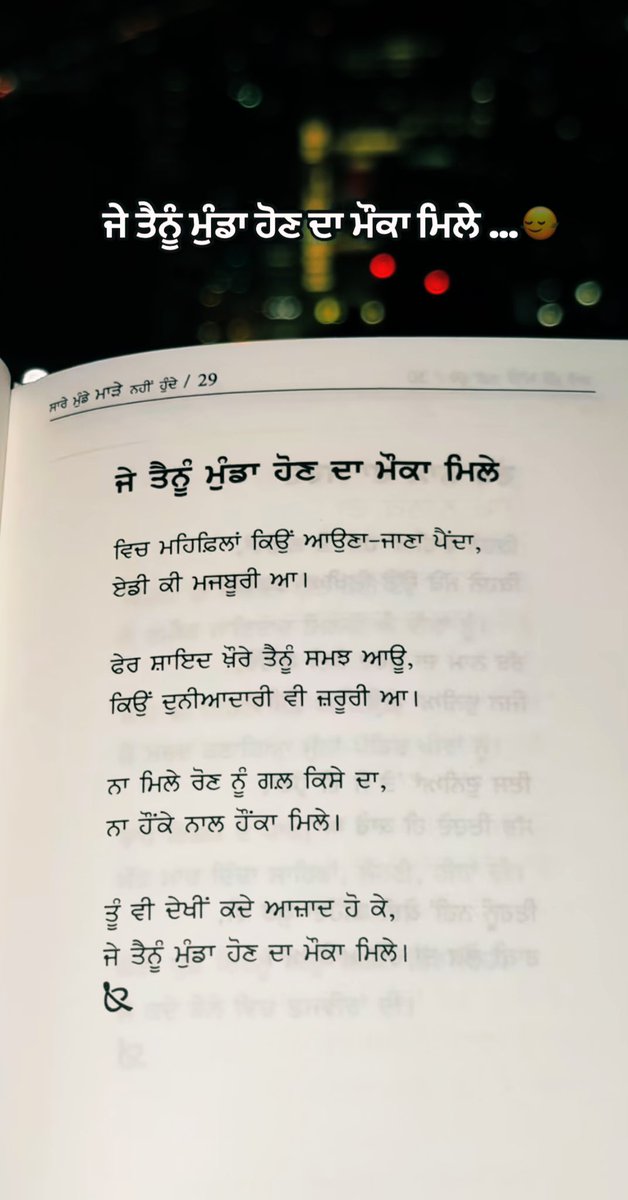 ਜੇ ਤੈਨੂੰ ਮੁੰਡਾ ਹੋਣ ਦਾ ਮੌਕਾ ਮਿਲੇ ...😌
ਸਾਰੇ ਮੁੰਡੇ ਮਾੜੇ ਨਹੀਂ ਹੁੰਦੇ / 29
ਜੇ ਤੈਨੂੰ ਮੁੰਡਾ ਹੋਣ ਦਾ ਮੌਕਾ ਮਿਲੇ
ਵਿਚ ਮਹਿਫ਼ਿਲਾਂ ਕਿਉਂ ਆਉਣਾ-ਜਾਣਾ ਪੈਂਦਾ,
ਏਡੀ ਕੀ ਮਜਬੂਰੀ ਆ।
ਫੇਰ ਸ਼ਾਇਦ ਖ਼ੌਰੇ ਤੈਨੂੰ ਸਮਝ ਆਊ,
ਕਿਉਂ ਦੁਨੀਆਦਾਰੀ ਵੀ ਜ਼ਰੂਰੀ ਆ।
ਨਾ ਮਿਲੇ ਰੋਣ ਨੂੰ ਗਲ਼ ਕਿਸੇ ਦਾ,
ਨਾ ਹੌਂਕੇ ਨਾਲ ਹੌਂਕਾ ਮਿਲੇ।
ਤੂੰ ਵੀ ਦੇਖੀਂ ਕਦੇ ਆਜ਼ਾਦ ਹੋ ਕੇ,
ਜੇ ਤੈਨੂੰ ਮੁੰਡਾ ਹੋਣ ਦਾ ਮੌਕਾ ਮਿਲੇ।